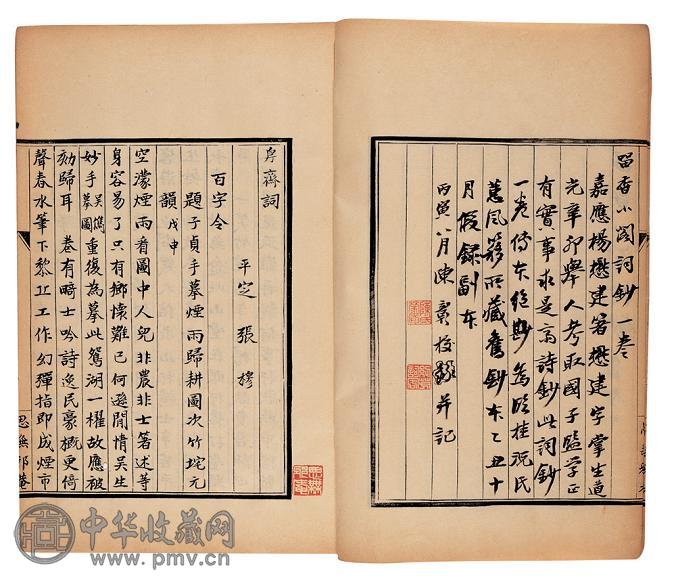 留香小閣詞鈔一卷
嘉應楊懋建箸懋建字掌生道
光辛卯舉人考取國子監學正
有實事求是齋詩鈔此詞鈔
一卷傳本絕尠為臨桂況氏
蕙風簃所藏舊鈔本乙丑十
月假錄副本
丙寅八月陳校錄并記
㐆齋詞
平定 張穆
百字令
題子貞手摹煙雨歸耕圖次竹垞元
韻 戊申
空濛煙雨看圖中人兒非農非士箸述等
身容易了只有鄉懷難已何遜閒情吳生
妙手 吳雋摹圖 重復為摹此鴛湖一櫂故應被
劾歸耳 卷有畸士吟詩逸民豪概更倚
聲春水筆下黎丘工作幻彈指即成煙市
思無邪庵
中华收藏网
www.pmv.cn